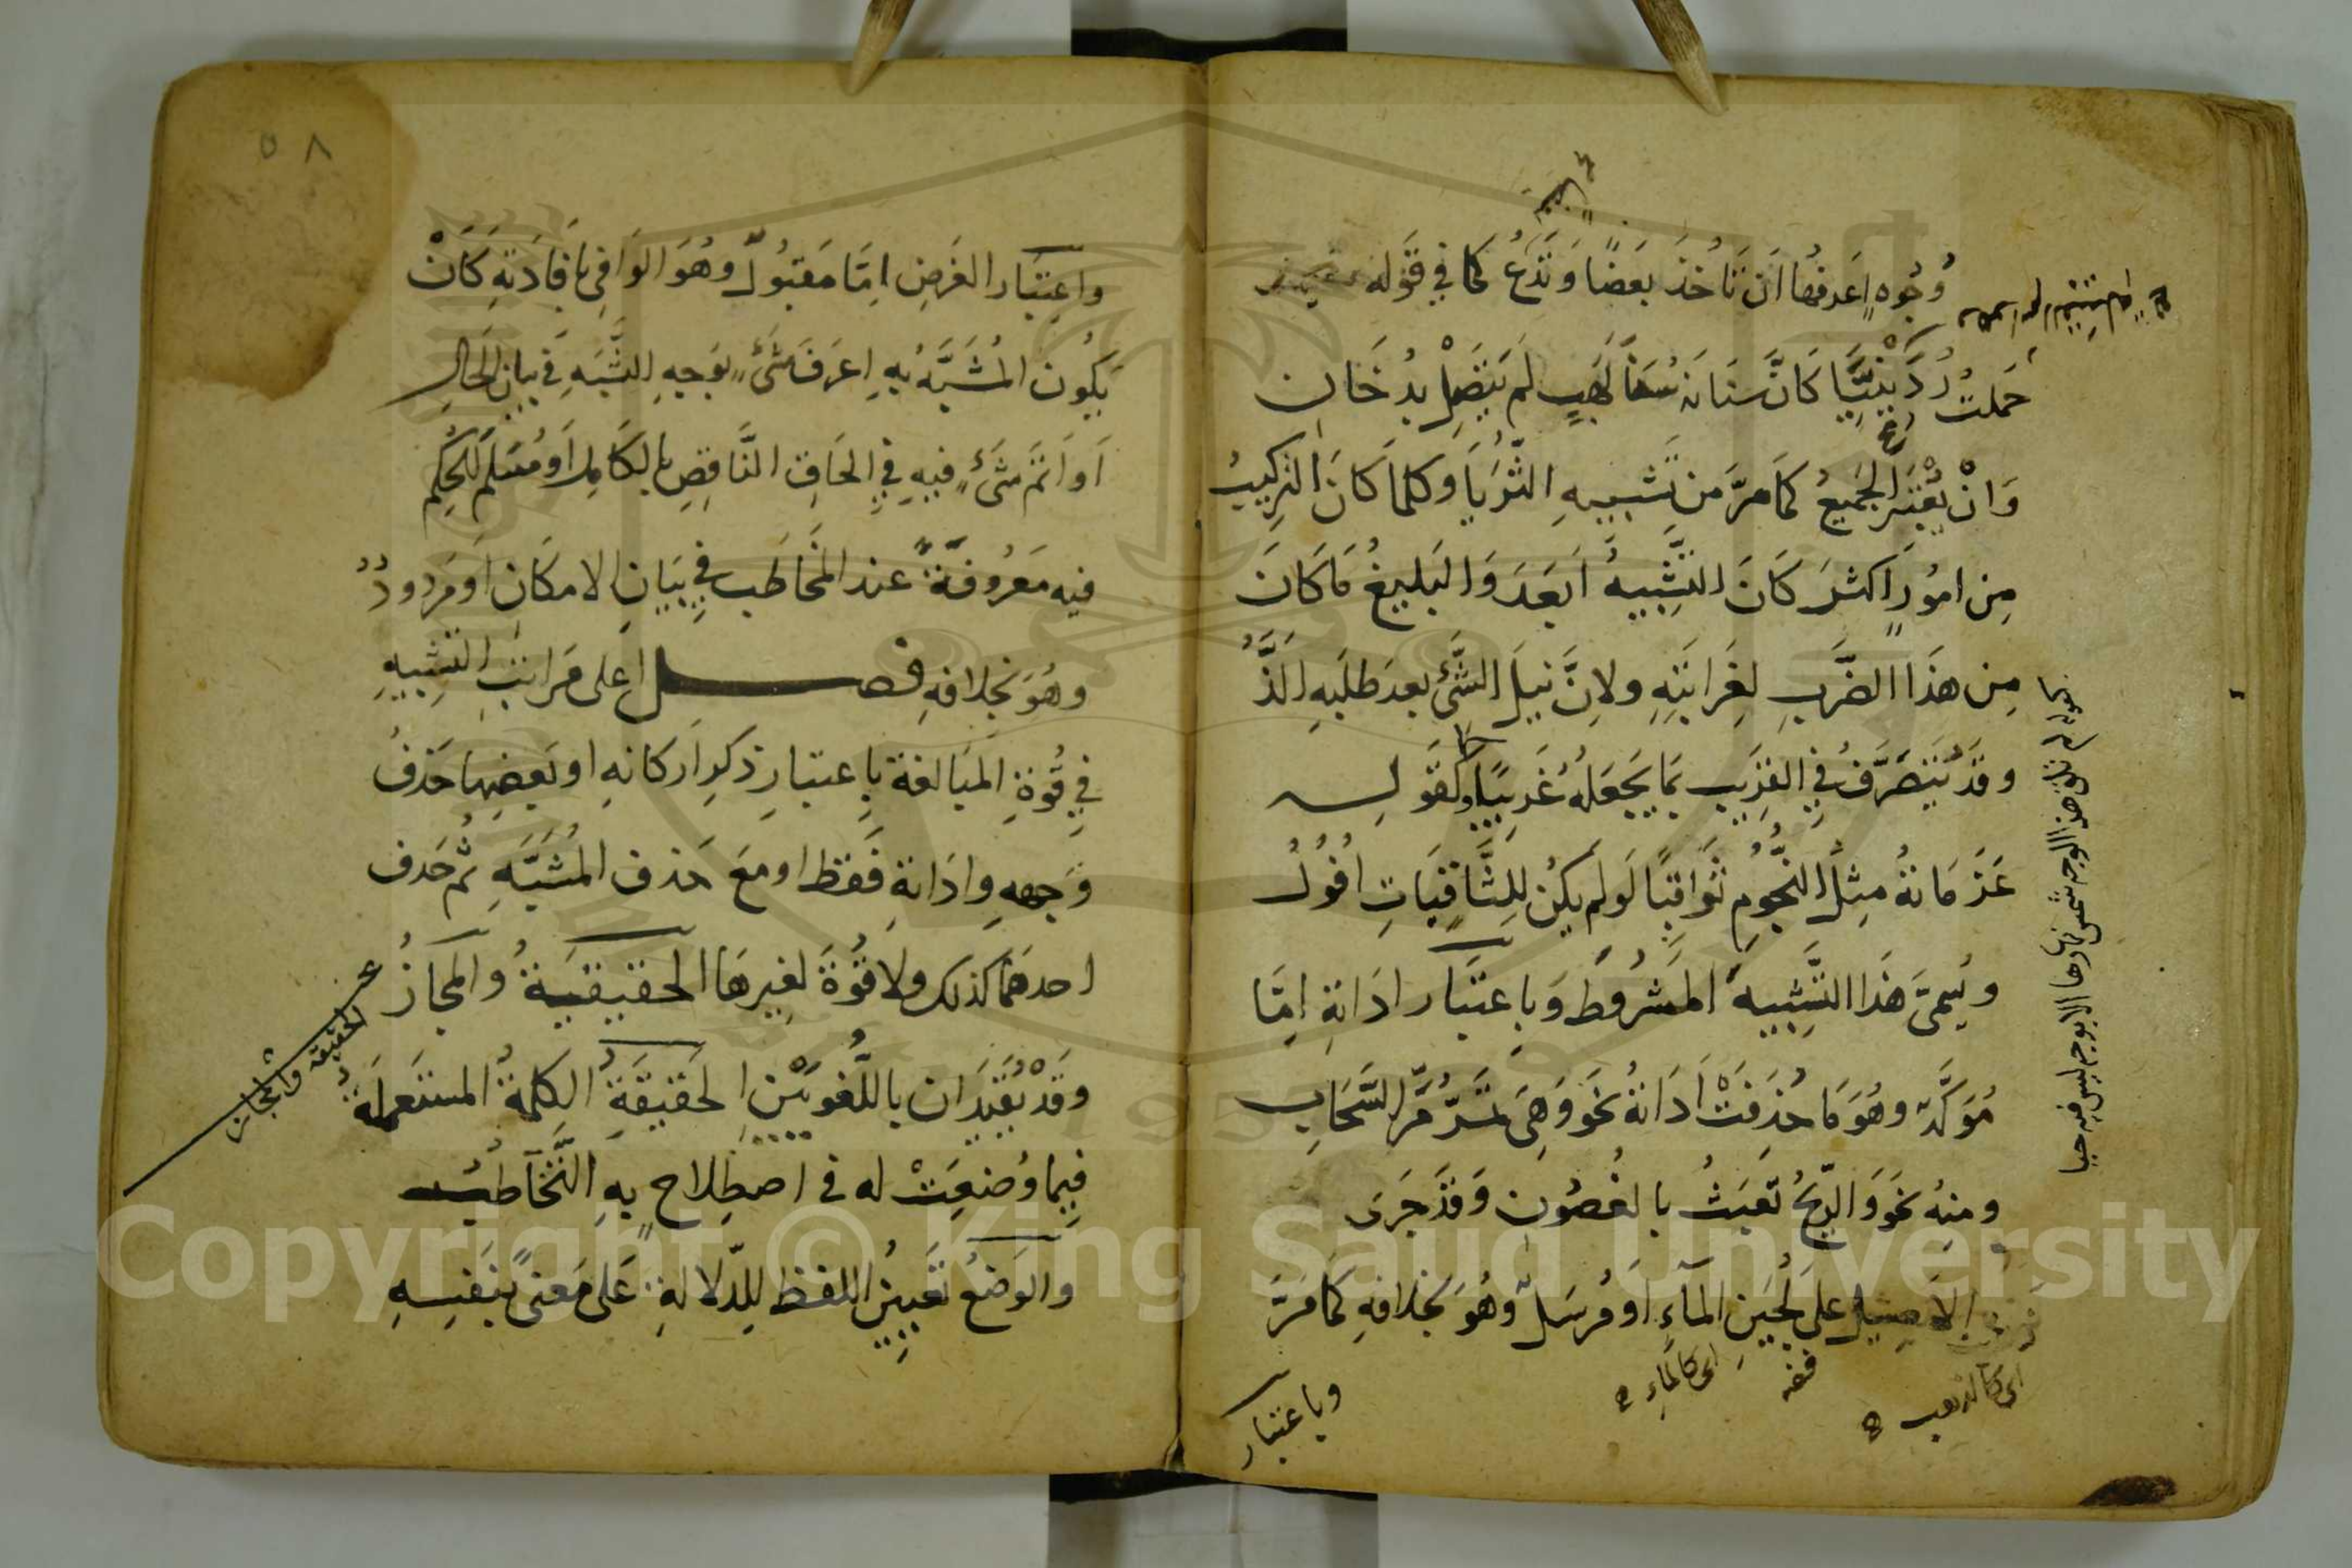 وُجُوهٍ اَعرفها اَن تَاخُذَ بَعَضًا وَتَدَعُ كما في قَوله
حَملتُ رُدَيْنِيَّا كَانَّ سنَانَهُ سَنَا لَهَبٍ لَم يَتَّصِلْ بدُخَان
وَانْ يُعْتَبَر الجَميعُ كمَا مَرَّ من تَشبيهِ الثُّرَيَا وَكلما كَانَ التركيبُ
مِن امُورٍ اَكثرَ كَانَ التَّشِبيهُ اَبعَدَ وَالبَليغُ مَا كَانَ
مِن هذَا الضَّربِ لغِرَابَتِهِ ولانَّ نَيلَ الشَّئ بعدَ طلَبِهِ الَذُّ
وقَد يُتَصَرَّفُ فِي القَرِيب بمَا يَجعَلهُ غَرِيبًا كقَولِه
عَزَمَاتهُ مِثلُ النُّجُومِ ثَوَاقِبًا لَو لم يكُن لِلثَّاقِبَاتِ اُفُولُ
ويُسمىَّ هَذا التَّشِبيهُ المَشرُوطَ وَبِاعتبَار ادَاتهِ امَّا
مُؤَكَّد وهُوَ مَا حُذِفَتْ اَدَاتهُ نحَو وَهِىَ تمَرُّ مَرَّ السَّحَابِ
ومنِهُ نحَو وَالرِّيحُ تَعبَثُ بالغُصُونِ وَقَد جَرىَ
ذهب الاَصِيل على لُجَينِ المَآءِ اَو مُرسَلٌ وَهُوَ بخلافهِ كمَا مَرَّ
اى كالذهب
فضه
اى كالماءِ
وباعتبار
بحوله لم تلق هذا الوجه شمس نهارها الا بوجه ليس فيه حيا
٥٨
واعِتبَار الغَرضِ امَّا مَقبُولٌ وهُوَ الوَافىِ بافِادَتهِ كَانْ
يَكُون المُشَبَّهُ بِهِ اعرَفَ شَىءٍ بوَجهِ الشَّبَهِ فِى بيَانِ الحَالِ
اَو اَتَمَّ شَىءٍ فيهِ فِي الحَاقِ النَّاقِصِ بالكَامِلِ اَو مُسَلَّمَ الحُكم
فيه مَعرُوفَةً عند المخَاطَب في بَيَانِ الامكَانِ اَو مَردودٌ
وهُوَ بخِلافهِ فصل اعلى مَرَاتبِ التشِبيهِ
فِي قُوةِ المبَالغة باِعتبَارِ ذكرِ اَركانهِ او بَعضِها حَذفُ
وَجههِ وادَاتهِ فَقط او مَعَ حَذف المُشَبَّهِ ثُم حَذف
احدهما كَذلك ولا قُوَّةَ لغِيرهَا الحقيقيَةُ وَالمجَازُ
الحقيقة والمجاز
وقَدْ يُقَيَّدَان باللُّغويَّيْنِ الحَقيقَةُ الكلِمَةُ المستَعملَةُ
فِيما وُضِعَتْ له فى اصطِلاحٍ بِهِ التَّخَاطبُ
والوَضعُ تَعيِينُ اللفظِ للِدّلالةِ عَلى مَعنىً بنَفسِهِ